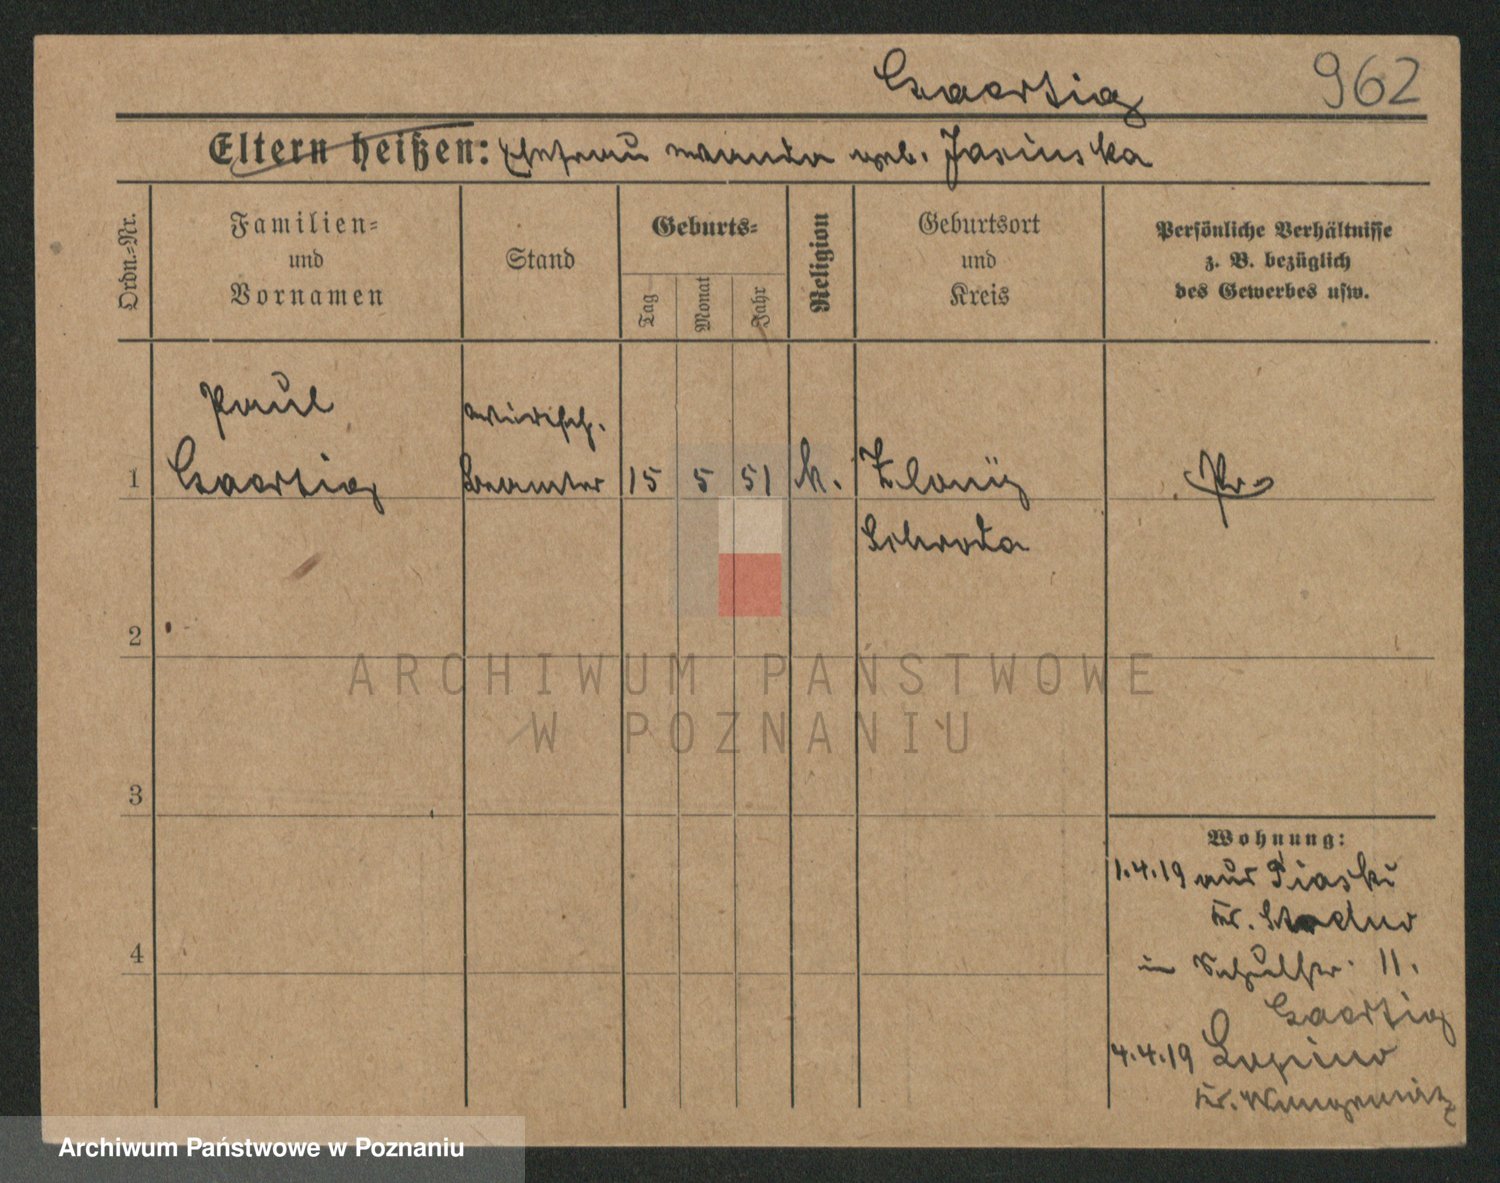 Gaertig
962
Eltern heißen: Ehefrau Wanda geb. Jasinska
Ordn.-Nr.
Familien-
und
Vornamen
Stand
Geburts-
Tag
Monat
Jahr
Religion
Geburtsort
und
Kreis
Persönliche Verhältnisse
z. B. bezüglich
des Gewerbes usw.
Paul
wirtsch.
1 Gaertig Beamter 15 5 51 k. Pr.
Schroda
2
3
4
Wohnung:
1.4.19 aus Piaski
Kr.
in Schulstr. 11.
Gaertig
4.4.19
Kr. Wongrowitz
ARCHIWUM PAŃSTWOWE
W POZNANIU
Archiwum Państwowe w Poznaniu